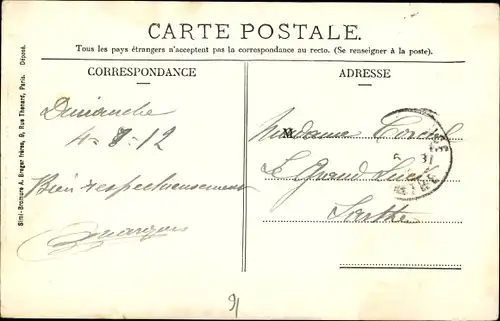 CARTE POSTALE.
Tous les pays étrangers n'acceptent pas la correspondance au recto. (Se renseigner à la poste).
CORRESPONDANCE
ADRESSE
Dimanche
4-8-12
Bien respectueusement
Madame
Le Grand Lucé
Sarthe
Simi-Bromure A. Breger frères, 9, Rue Thenard, Paris. Déposé.
91